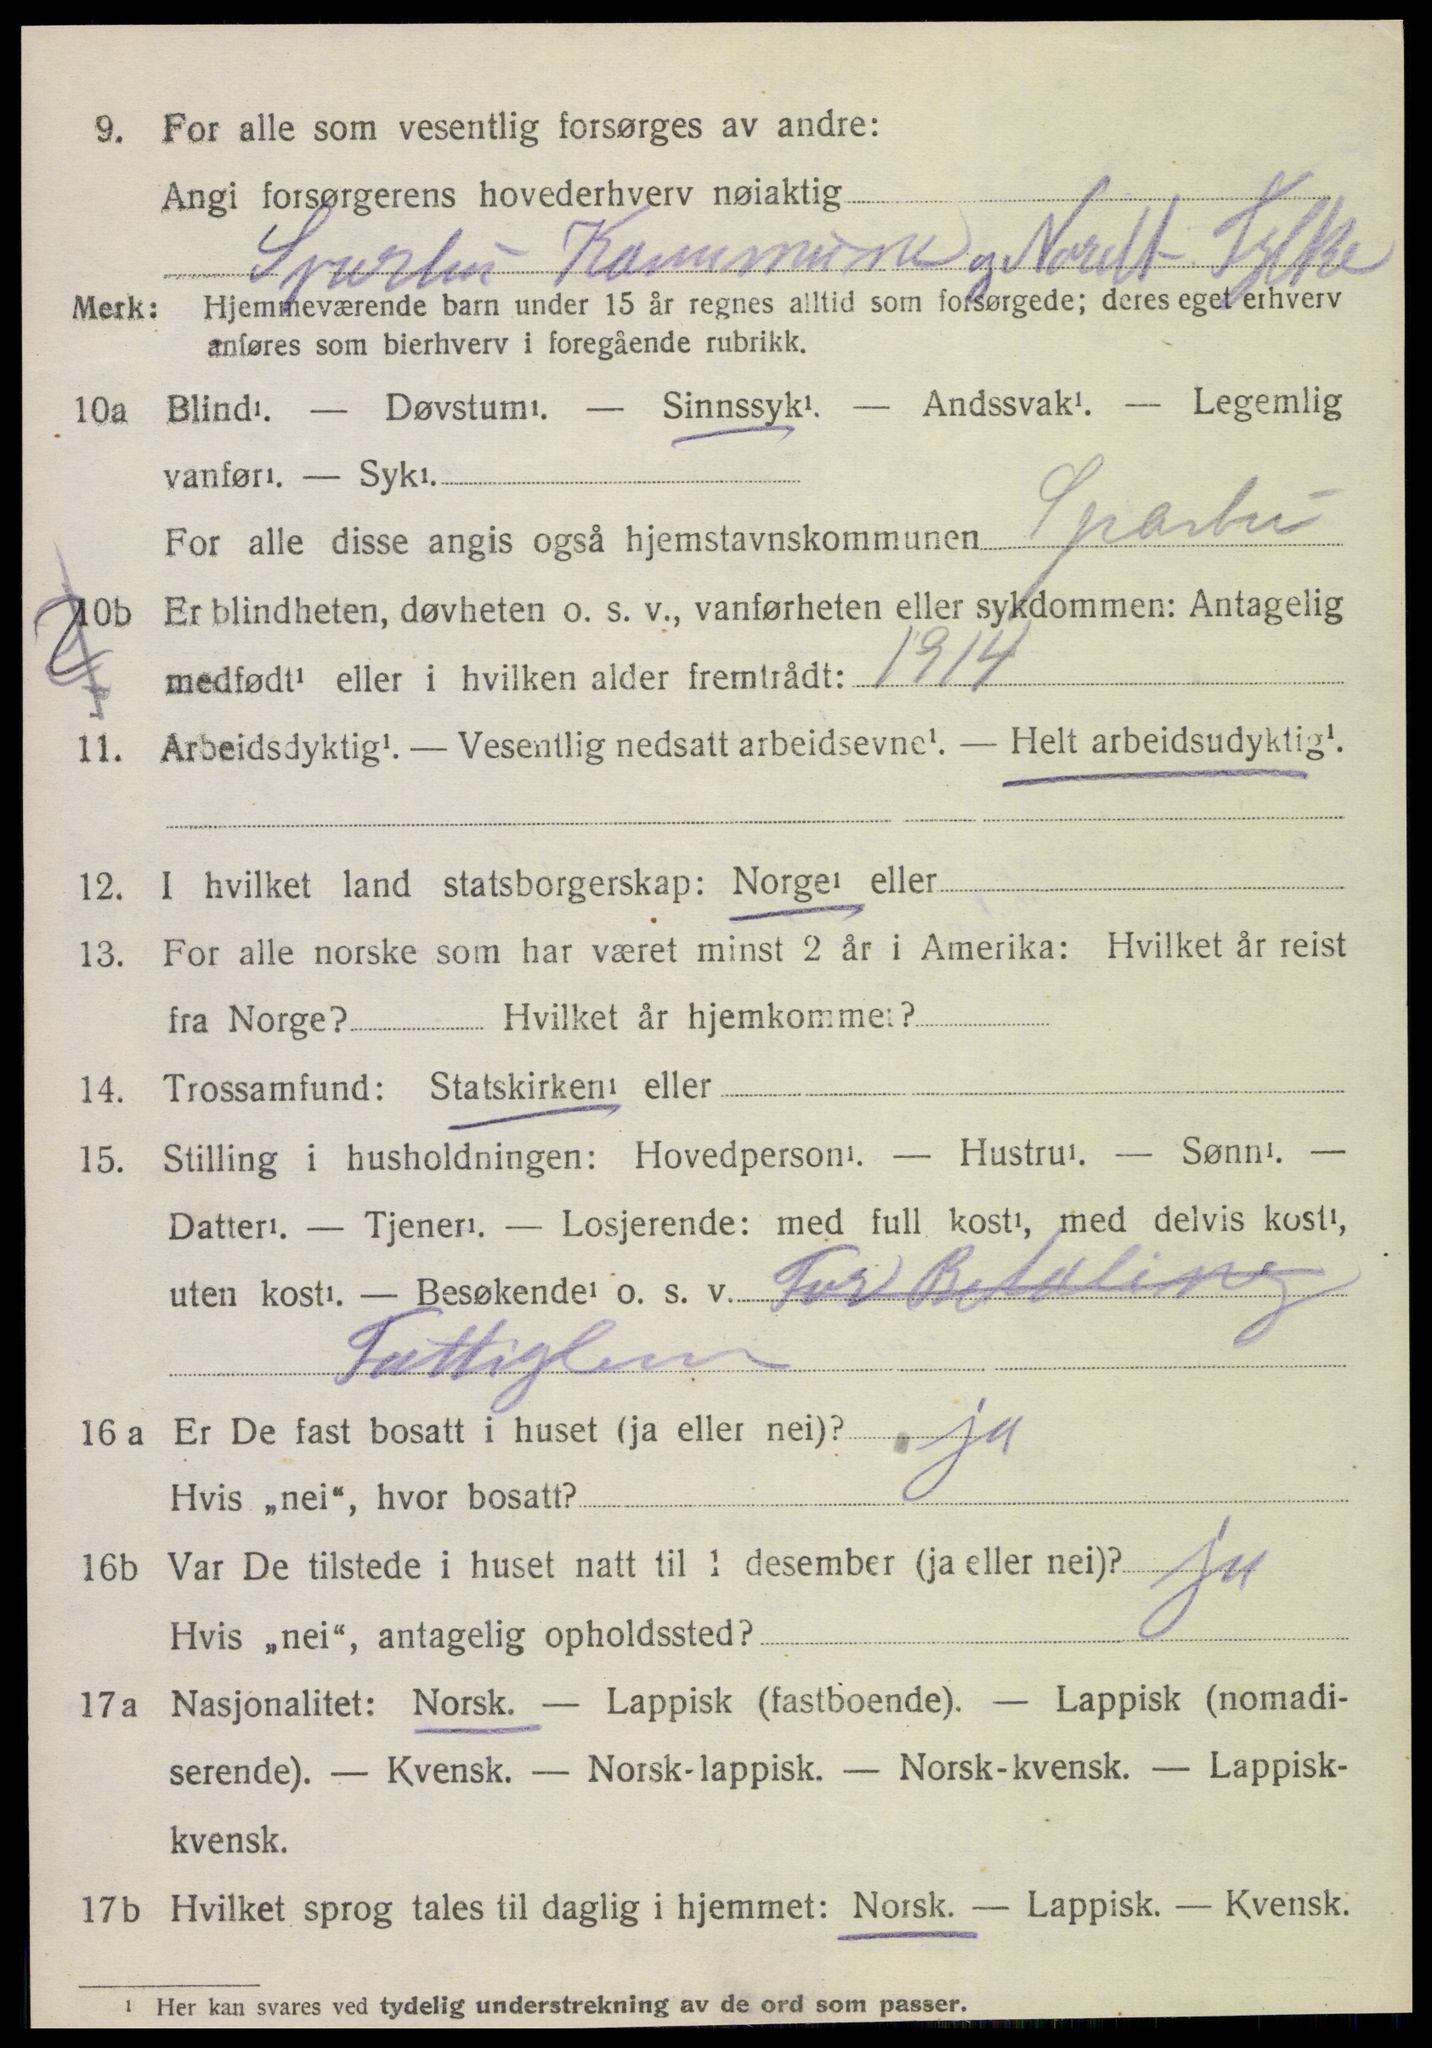 9. For alle som vesentlig forsørges av andre:
Angi forsørgerens hovederhverv nøiaktig
Sparbu Kommune og Nordt Fylke
Merk: Hjemmeværende barn under 15 år regnes alltid som forsørgede; deres eget erhverv
anføres som bierhverv i foregående rubrikk.
10a Blind¹. — Døvstum¹. — Sinnssyk¹. — Andssvak¹. — Legemlig
vanfør¹. — Syk¹.
For alle disse angis også hjemstavnskommunen Sparbu
10b Er blindheten, døvheten o. s. v., vanførheten eller sykdommen: Antagelig
medfødt¹ eller i hvilken alder fremtrådt: 1914
11. Arbeidsdyktig¹. — Vesentlig nedsatt arbeidsevne¹. — Helt arbeidsudyktig¹.
12. I hvilket land statsborgerskap: Norge¹ eller
13. For alle norske som har været minst 2 år i Amerika: Hvilket år reist
fra Norge? Hvilket år hjemkommet?
14. Trossamfund: Statskirken¹ eller
15. Stilling i husholdningen: Hovedperson¹. — Hustru¹. — Sønn¹. —
Datter¹. — Tjener¹. — Losjerende: med full kost¹, med delvis kost¹,
uten kost¹. — Besøkende¹ o. s. v. For Betaling
Fattiglem
16 a Er De fast bosatt i huset (ja eller nei)? ja
Hvis „nei“, hvor bosatt?
16b Var De tilstede i huset natt til 1 desember (ja eller nei)? ja
Hvis „nei“, antagelig opholdssted?
17 a Nasjonalitet: Norsk. — Lappisk (fastboende). — Lappisk (nomadi-
serende). — Kvensk. — Norsk-lappisk. — Norsk-kvensk. — Lappisk-
kvensk.
17b Hvilket sprog tales til daglig i hjemmet: Norsk. — Lappisk. — Kvensk.
¹ Her kan svares ved tydelig understrekning av de ord som passer.